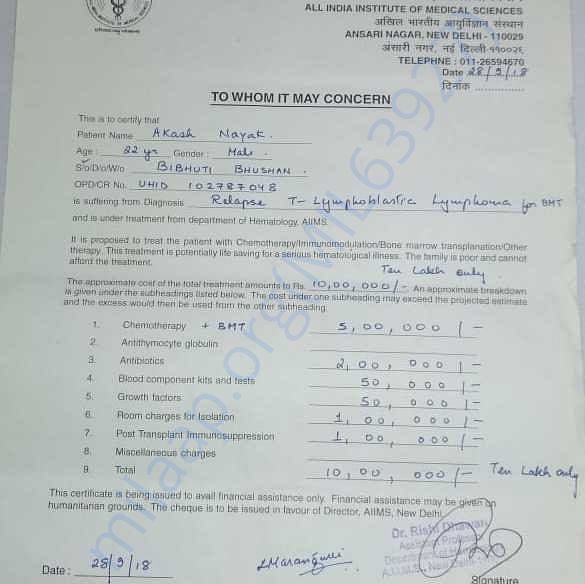 ALL INDIA INSTITUTE OF MEDICAL SCIENCES
अखिल भारतीय आयुर्विज्ञान संस्थान
ANSARI NAGAR, NEW DELHI - 110029
अंसारी नगर, नई दिल्ली-११००२९
TELEPHNE : 011-26594670
Date 28/9/18
दिनांक ..............
TO WHOM IT MAY CONCERN
This is to certify that
Patient Name Akash Nayak.
Age : 22 yr Gender : Male
S/o/D/o/W/o BIBHUTI BHUSHAN.
OPD/CR No. UHID 102787048
is suffering from Diagnosis Relapse T-Lymphoblastic Lymphoma for BMT
and is under treatment from department of Hematology, AIIMS.
It is proposed to treat the patient with Chemotherapy/Immunomodulation/Bone marrow transplanation/Other
therapy. This treatment is potentially life saving for a serious hematological illness. The family is poor and cannot
afford the treatment.
Ten Lakh only.
The approximate cost of the total treatment amounts to Rs. 10,00,000/- An approximate breakdown
is given under the subheadings listed below. The cost under one subheading may exceed the projected estimate
and the excess would then be used from the other subheading.
1. Chemotherapy + BMT 5,00,000/-
2. Antithymocyte globulin
3. Antibiotics 2,00,000/-
4. Blood component kits and tests 50,000/-
5. Growth factors 50,000/-
6. Room charges for Isolation 1,00,000/-
7. Post Transplant Immunosuppression 1,00,000/-
8. Miscellaneous charges
9. Total 10,00,000/- Ten Lakh only
This certificate is being issued to avail financial assistance only. Financial assistance may be given on
humanitarian grounds. The cheque is to be issued in favour of Director, AIIMS, New Delhi.
Dr. Rishi Dhawan
Assistant Professor
Department of
A.I.I.M.S., New Delhi
Date : 28/9/18
Signature
milaap.org/MIL6392